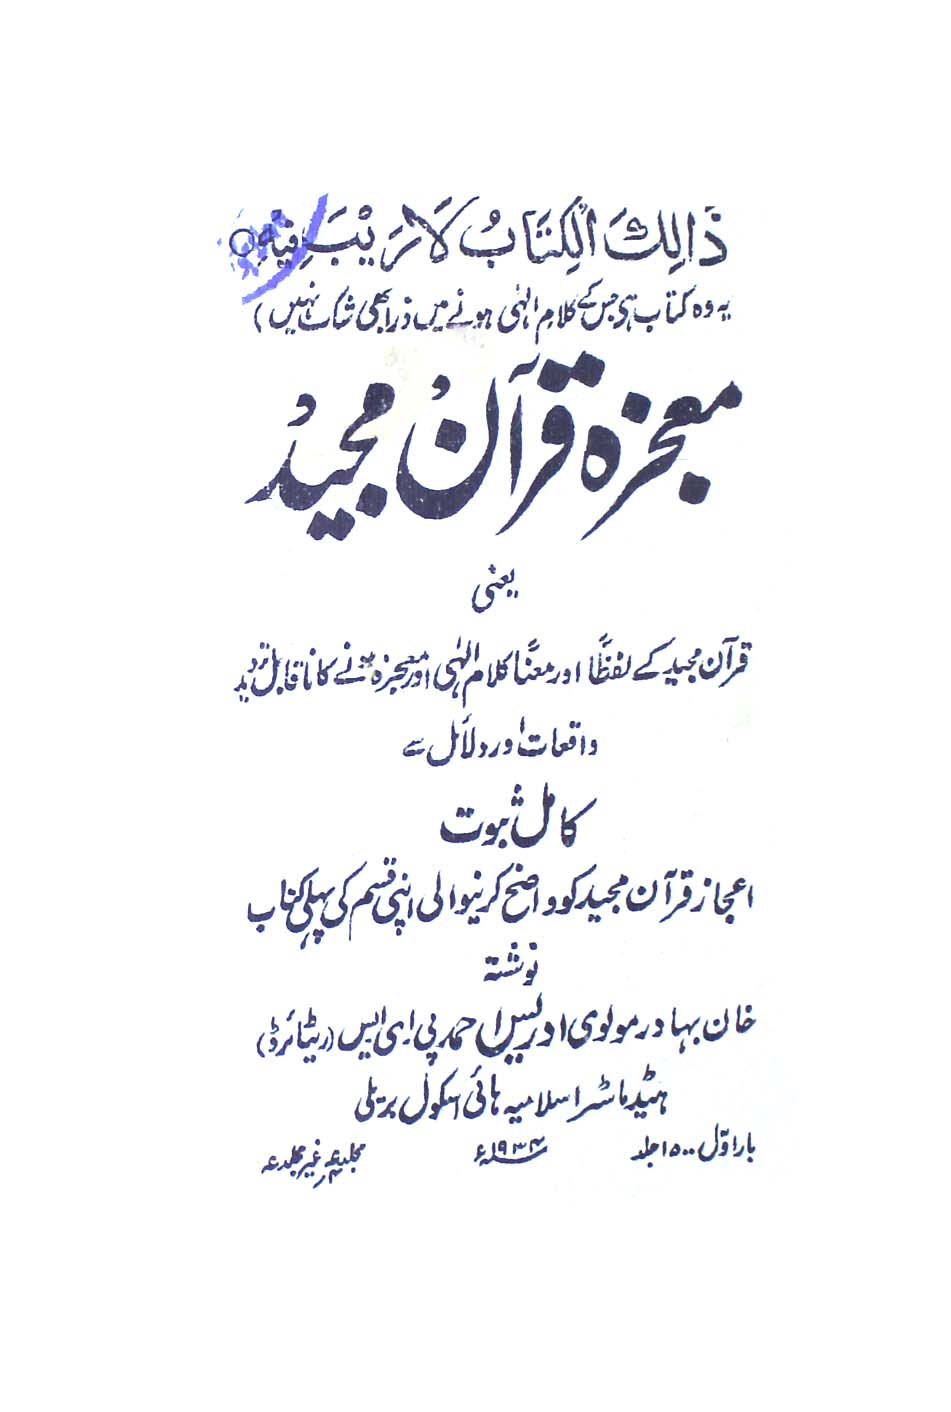 ذَالِكَ الْكِتَابُ لَا رَيْبَ فِيْهِ ○
یہ وہ کتاب ہی جس کے کلامِ الٰہی ہونے میں ذرا بھی شک نہیں)
معجزہ قرآن مجید
یعنی
قرآن مجید کے لفظًا اور معنًا کلام الٰہی اور معجزہ ہونے کا ناقابل تردید
واقعات اور دلائل سے
کامل ثبوت
اعجاز قرآن مجید کو واضح کرنیوالی اپنی قسم کی پہلی کتاب
نوشتہ
خان بہادر مولوی ادریس احمد پی ای ایس (ریٹائرڈ)
ہیڈ ماسٹر اسلامیہ ہائی اسکول بریلی
بار اوّل ۱۵۰۰ جلد ۱۹۳۴ء مجلد غیر مجلد